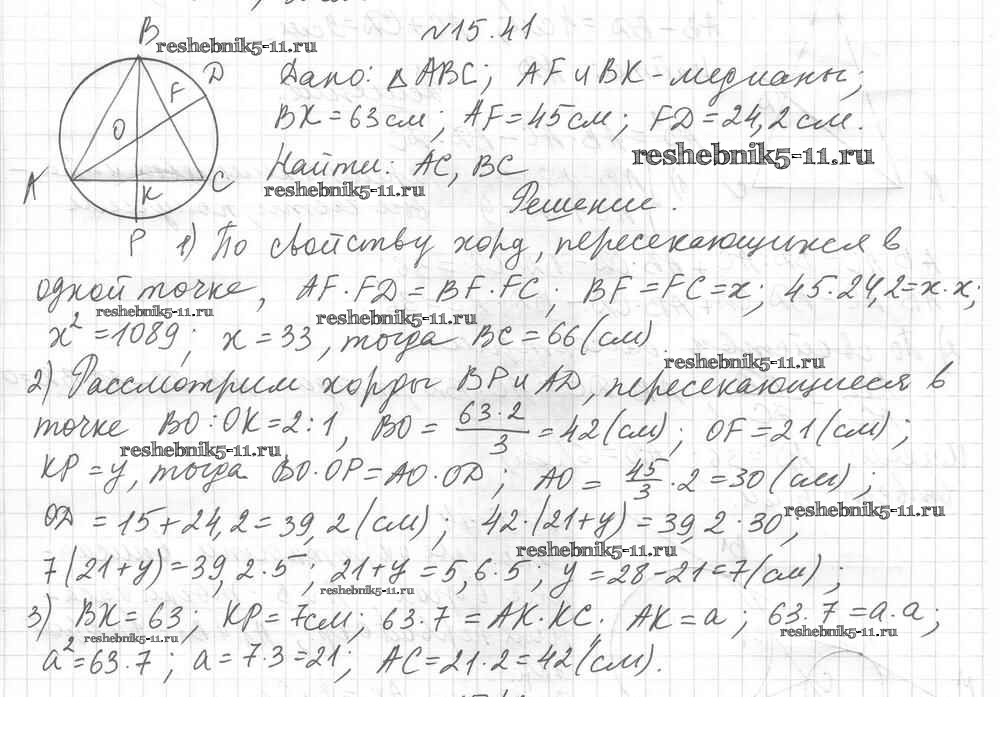 N15.41
B
reshebnik5-11.ru
D
F
O
A
C
K
P
Дано: △ABC; AF и BK - медианы;
BK = 63 см; AF = 45 см; FD = 24,2 см.
reshebnik5-11.ru
Найти: AC, BC
reshebnik5-11.ru
Решение.
1) По свойству хорд, пересекающихся в
одной точке, AF·FD = BF·FC; BF = FC = x; 45·24,2 = x·x;
reshebnik5-11.ru
reshebnik5-11.ru
x² = 1089; x = 33, тогда BC = 66 (см)
reshebnik5-11.ru
2) Рассмотрим хорды BP и AD, пересекающиеся в
точке BO:OK = 2:1, BO = 63·2/3 = 42 (см); OF = 21 (см);
reshebnik5-11.ru
KP = y, тогда BO·OP = AO·OD; AO = 45/3·2 = 30 (см);
reshebnik5-11.ru
OD = 15 + 24,2 = 39,2 (см); 42·(21+y) = 39,2·30,
reshebnik5-11.ru
7(21+y) = 39,2·5; 21+y = 5,6·5; y = 28-21 = 7 (см);
reshebnik5-11.ru
3) BK = 63; KP = 7см; 63·7 = AK·KC. AK = a; 63·7 = a·a;
reshebnik5-11.ru
reshebnik5-11.ru
a² = 63·7; a = 7·3 = 21; AC = 21·2 = 42 (см).